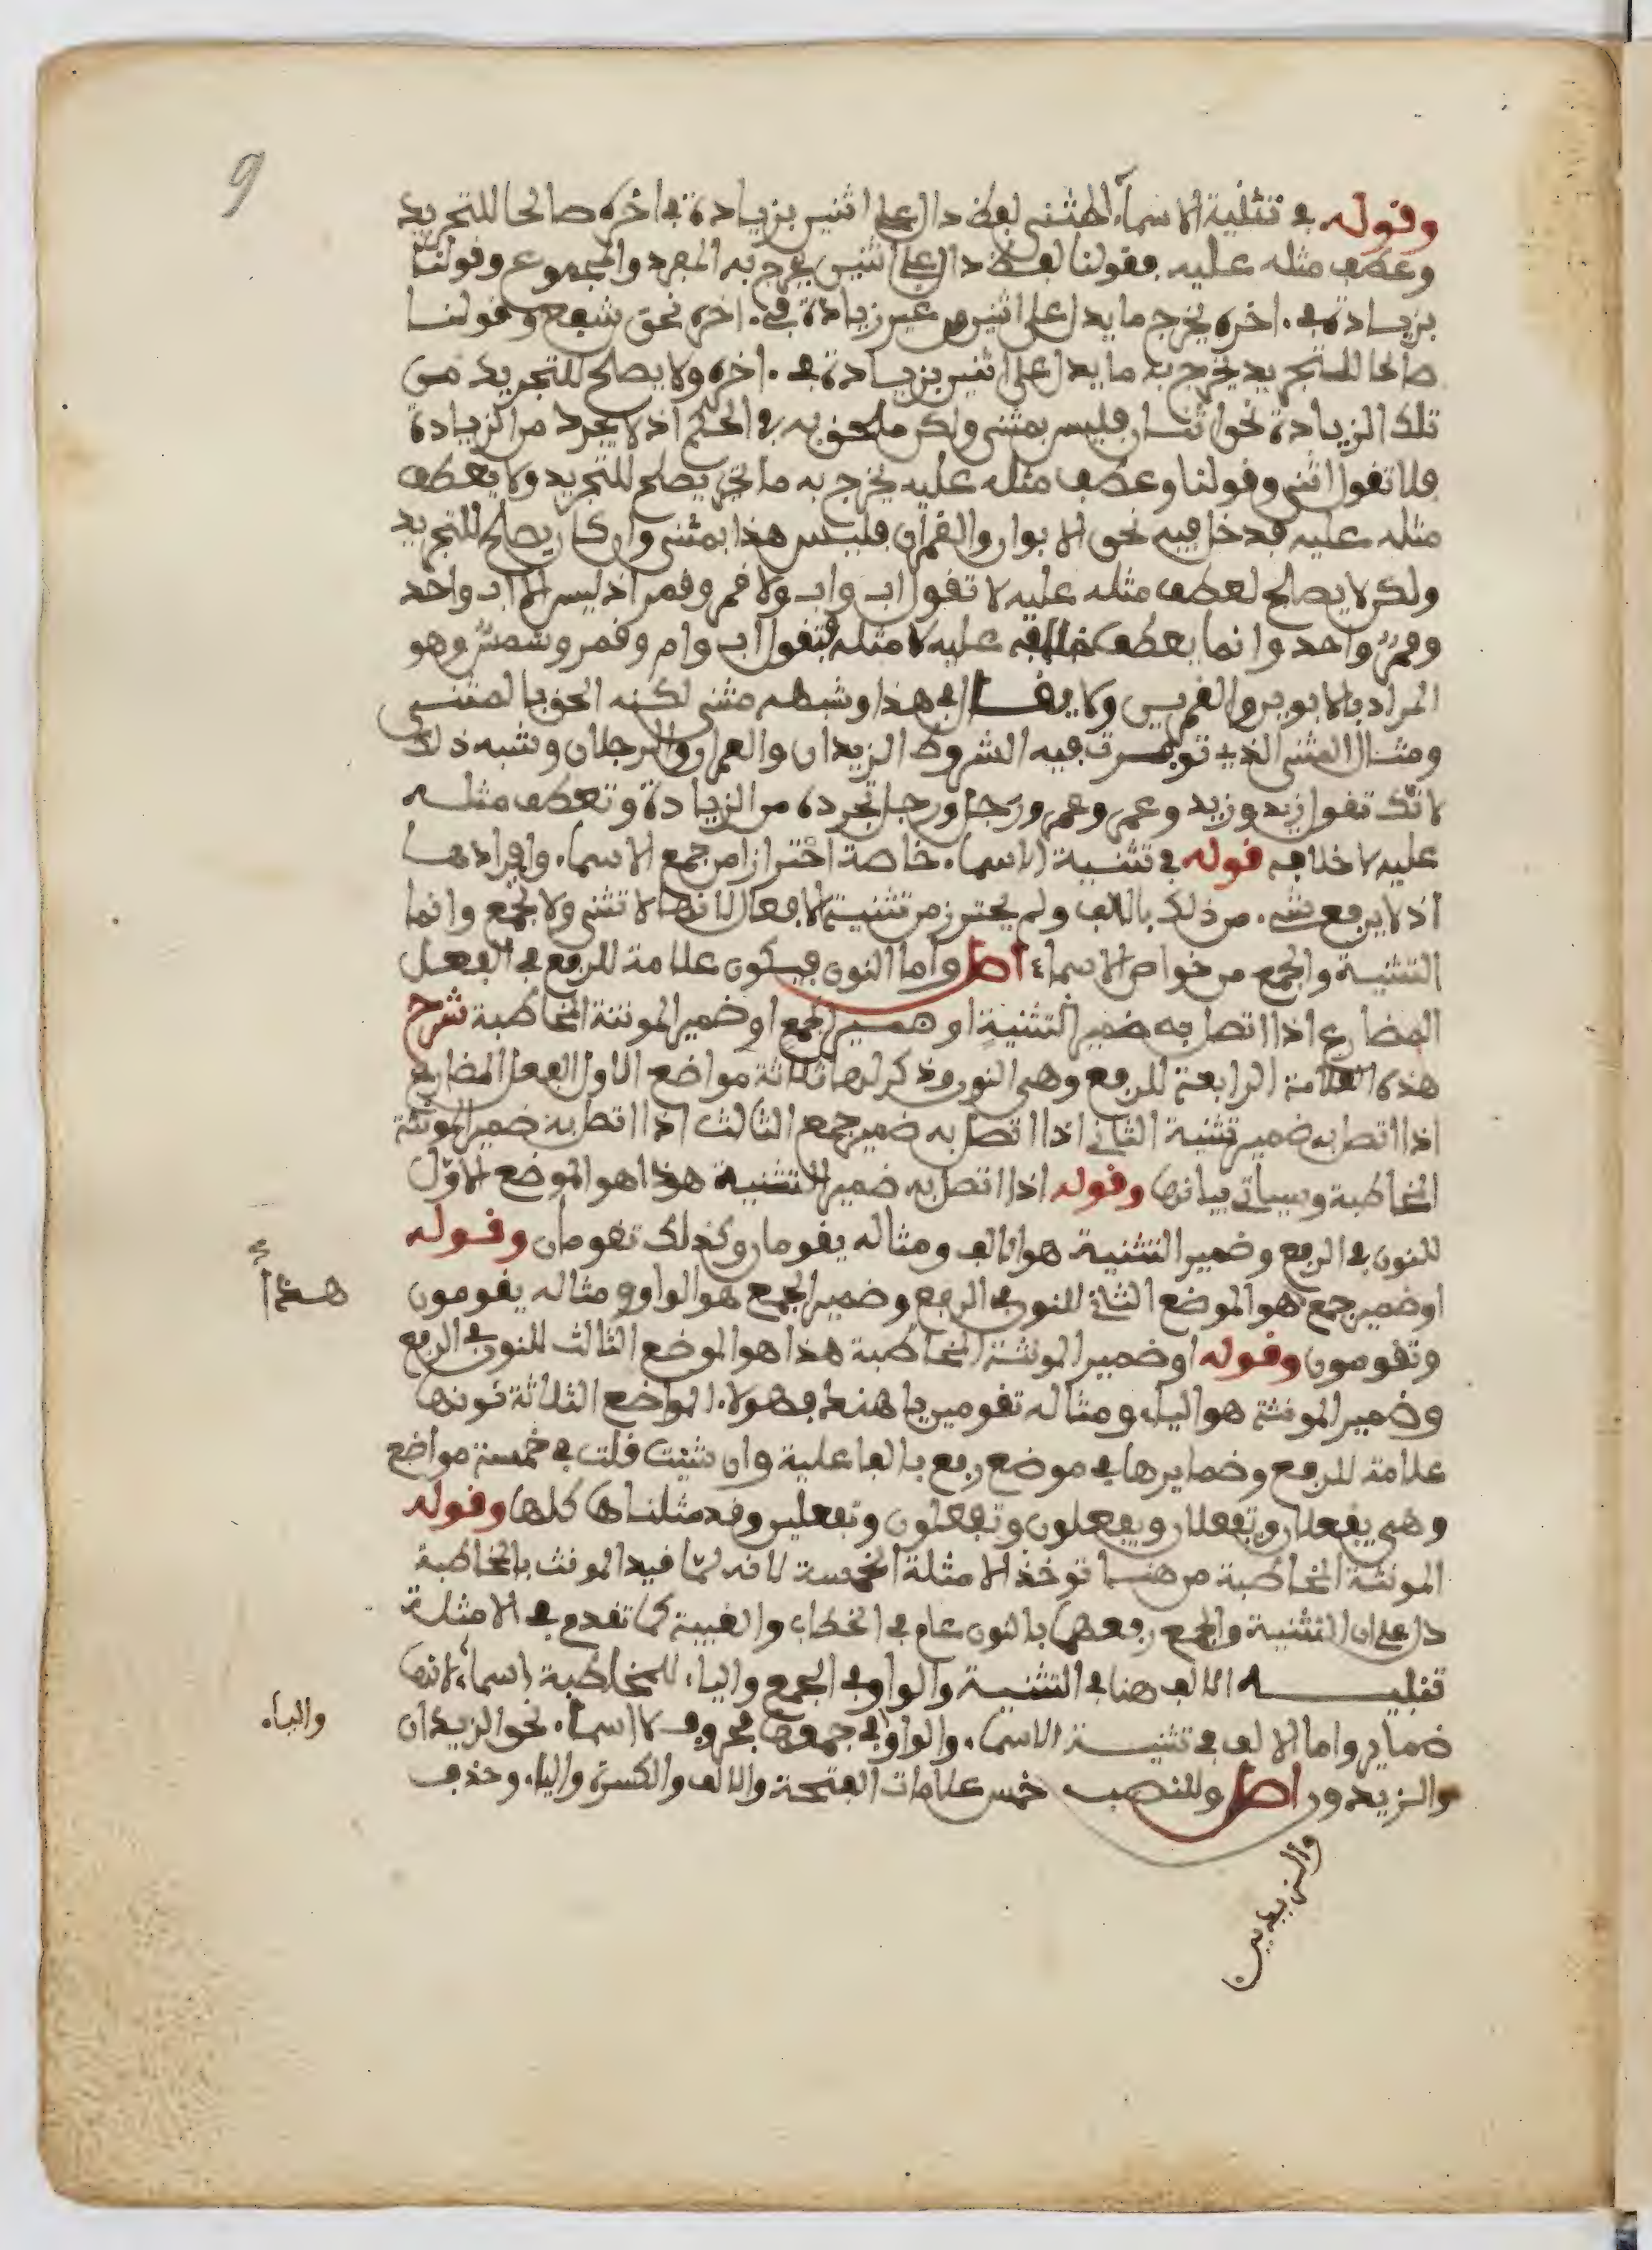 9
وقوله في تثنية الاسماء المثنى لفظ دال على اثنين بزيادة في اخره صالحا للتجريد
وعطف مثله عليه فقولنا لفظ دال على اثنين يخرج به المفرد والمجموع وقولنا
بزيادة في اخره يخرج ما يدل على اثنين من غير زيادة في اخره نحو شفع وقولنا
صالحا للتجريد يخرج به ما يدل على اثنين بزيادة في اخره ولا يصلح للتجريد من
تلك الزيادة نحو اثنان فليس بمثنى ولكن ملحق به في الحكم اذ لا يجرد من الزيادة
فلا تقول اثن وقولنا وعطف مثله عليه يخرج به ما يصلح للتجريد ولا يعطف
مثله عليه فدخل فيه نحو الابوان والقمران فليس هذا بمثنى وان كان يصلح للتجريد
ولكن لا يصلح لعطف مثله عليه لا تقول اب واب ولا قمر وقمر اذ ليس الا اب واحد
وقمر واحد وانما يعطف خلافه عليه لا مثله فتقول اب وام وقمر وشمس وهو
المراد بالابوين والقمرين ولا يقال في هذا وشبهه مثنى لكنه الحق بالمثنى
ومثال المثنى الذي توفرت فيه الشروط الزيدان والعمران والرجلان وشبه ذلك
لانك تقول زيد وزيد وعمرو وعمرو ورجل ورجل تجرده من الزيادة وتعطف مثله
عليه لا خلافه قوله في تثنية الاسماء خاصة احترازا من جمع الاسماء وافرادها
اذ لا يرفع شيء من ذلك بالالف ولم يحترز من تثنية الافعال لانها لا تثنى ولا تجمع وانما
التثنية والجمع من خواص الاسماء اصل واما النون فيكون علامة للرفع في الفعل
المضارع اذا اتصل به ضمير التثنية او ضمير الجمع او ضمير المونثة المخاطبة شرح
هذه العلامة الرابعة للرفع وهي النون وذكر لها ثلاثة مواضع الاول الفعل المضارع
اذا اتصل به ضمير تثنية الثاني اذا اتصل به ضمير جمع الثالث اذا اتصل به ضمير المونثة
المخاطبة وسياتي بيانها وقوله اذا اتصل به ضمير التثنية هذا هو الموضع الاول
للنون في الرفع وضمير التثنية هو الالف ومثاله يقومان وكذلك تقومان وقوله
او ضمير جمع هو الموضع الثاني للنون في الرفع وضمير الجمع هو الواو ومثاله يقومون
هذا
وتقومون وقوله او ضمير المونثة المخاطبة هذا هو الموضع الثالث للنون في الرفع
وضمير المونثة هو الياء ومثاله تقومين يا هند فهولاء المواضع الثلاثة نونها
علامة للرفع وضمايرها في موضع رفع بالفاعلية وان شئت قلت في خمسة مواضع
وهي يفعلان وتفعلان ويفعلون وتفعلون وتفعلين وقد مثلناها كلها وقوله
المونثة المخاطبة من هنا توخذ الامثلة الخمسة لانه لما قيد المونث بالمخاطبة
دل على ان التثنية والجمع رفعهما بالنون عام في الخطاب والغيبة كما تقدم في الامثلة
تنبيه الالف هنا في التثنية والواو في الجمع والياء للمخاطبة اسماء لانها
ضماير واما الالف في تثنية الاسماء والواو في جمعها فحروف لا اسماء نحو الزيدان
والياء
والزيدون اصل وللنصب خمس علامات الفتحة والالف والكسرة والياء وحذف
والزيدين